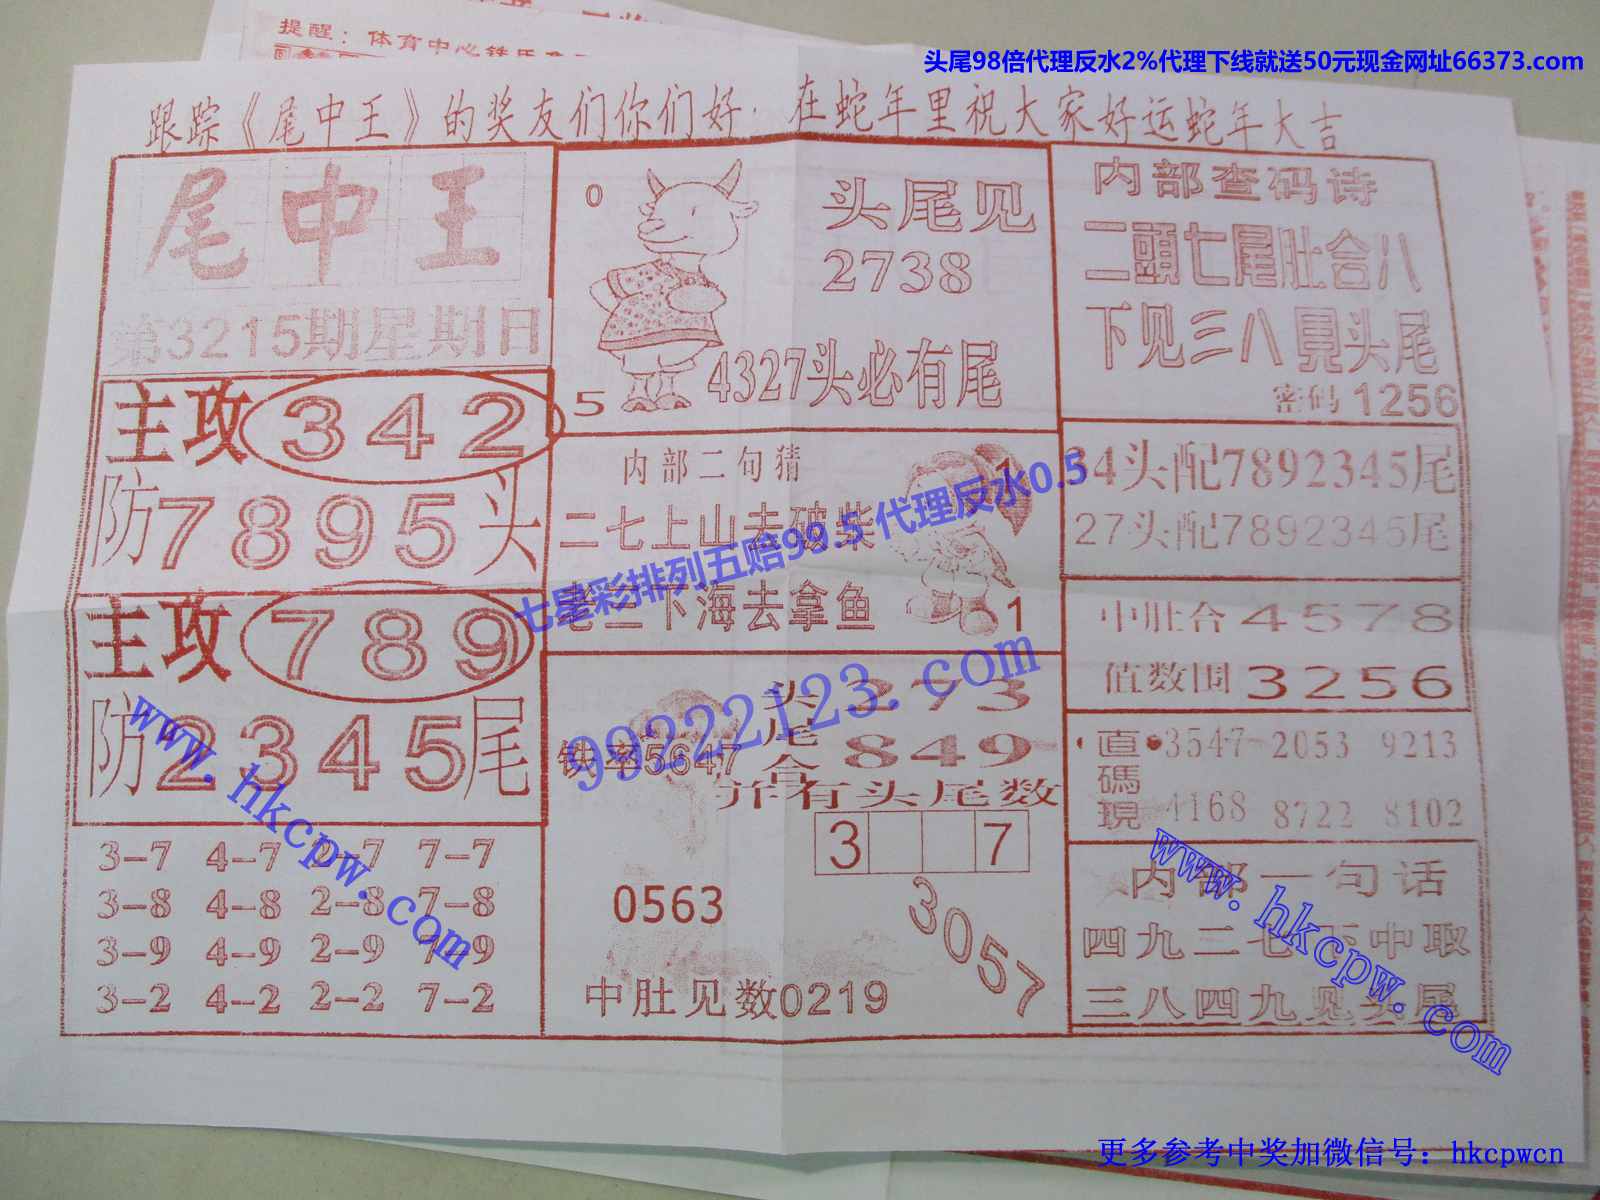 提醒：体育中心
头尾98倍代理反水2%代理下线就送50元现金网址66373.com
跟踪《尾中王》的奖友们你们好．在蛇年里祝大家好运蛇年大吉
尾中王
第3215期星期日
主攻342
防7895头
主攻789
防2345尾
3-7 4-7 2-7 7-7
3-8 4-8 2-8 7-8
3-9 4-9 2-9 7-9
3-2 4-2 2-2 7-2
0
头尾见
2738
5
4327头必有尾
内部二句猜
二七上山去破柴
老三下海去拿鱼
1
七星彩排列五赔99.5 代理反水0.5
99222123.com
头尾合
273
849
铁率5647
并有头尾数
3 7
0563
3057
中肚见数0219
内部查码诗
二頭七尾肚合八
下见三八見头尾
密码1256
34头配7892345尾
27头配7892345尾
中肚合4578
值数围3256
直碼現
3547-2053 9213
4168 8722 8102
内部一句话
四九二七下中取
三八四九见头尾
www.hkcpw.com
www.hkcpw.com
更多参考中奖加微信号：hkcpwcn